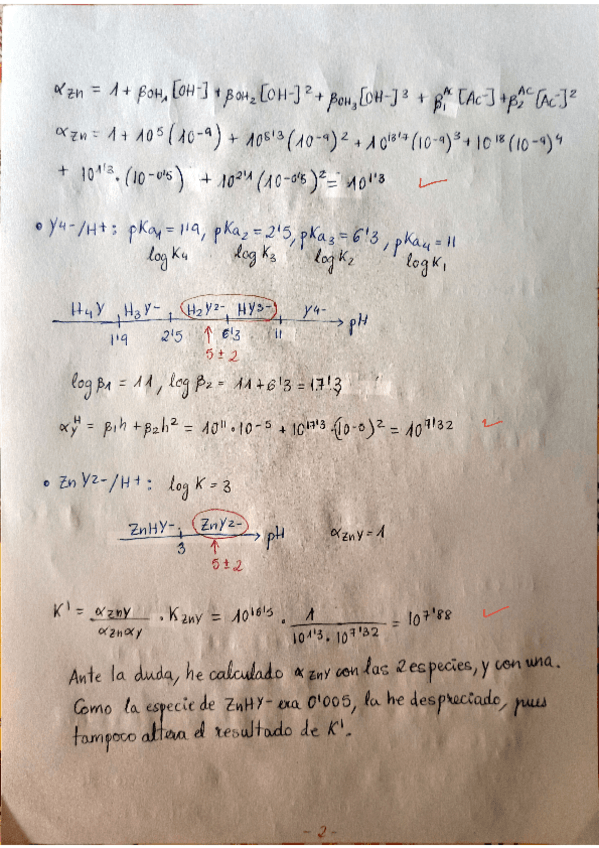 αZn = 1 + βOH1 [OH-] + βOH2 [OH-]² + βOH3 [OH-]³ + β1^Ac [Ac-] + β2^AC [Ac-]²
αZn = 1 + 10^5 (10^-9) + 10^8'3 (10^-9)² + 10^13'7 (10^-9)³ + 10^18 (10^-9)⁴
+ 10^1'3 · (10^-0'5) + 10^2'1 (10^-0'5)² = 10^1'3 ✓
• Y4-/H+: pKa1 = 1'9, pKa2 = 2'5, pKa3 = 6'3, pKa4 = 11
logK4 logK3 logK2 logK1
H4Y H3Y- H2Y2- HY3- Y4- pH
1'9 2'5 6'3 11
5 ± 2
logβ1 = 11, logβ2 = 11 + 6'3 = 17'3
αY^H = β1h + β2h² = 10^11 · 10^-5 + 10^17'3 · (10^-5)² = 10^7'32 ✓
• ZnY2-/H+: log K = 3
ZnHY- ZnY2- pH αZnY = 1
3
5 ± 2
K' = αZnY / αZnαY · KZnY = 10^16'5 · 1 / 10^1'3 · 10^7'32 = 10^7'88 ✓
Ante la duda, he calculado αZnY con las 2 especies, y con una.
Como la especie de ZnHY- era 0'005, la he despreciado, pues
tampoco altera el resultado de K'.
- 2 -